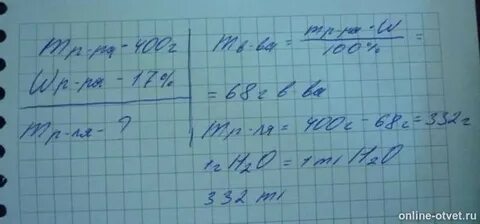 mр-ра - 400г
Wр-ра - 17%
mр-ля - ?
mв-ва = mр-ра · W / 100% =
= 68г в ва
mр-ля = 400г - 68г = 332г
1г H2O = 1 ml H2O
332 ml
online-otvet.ru